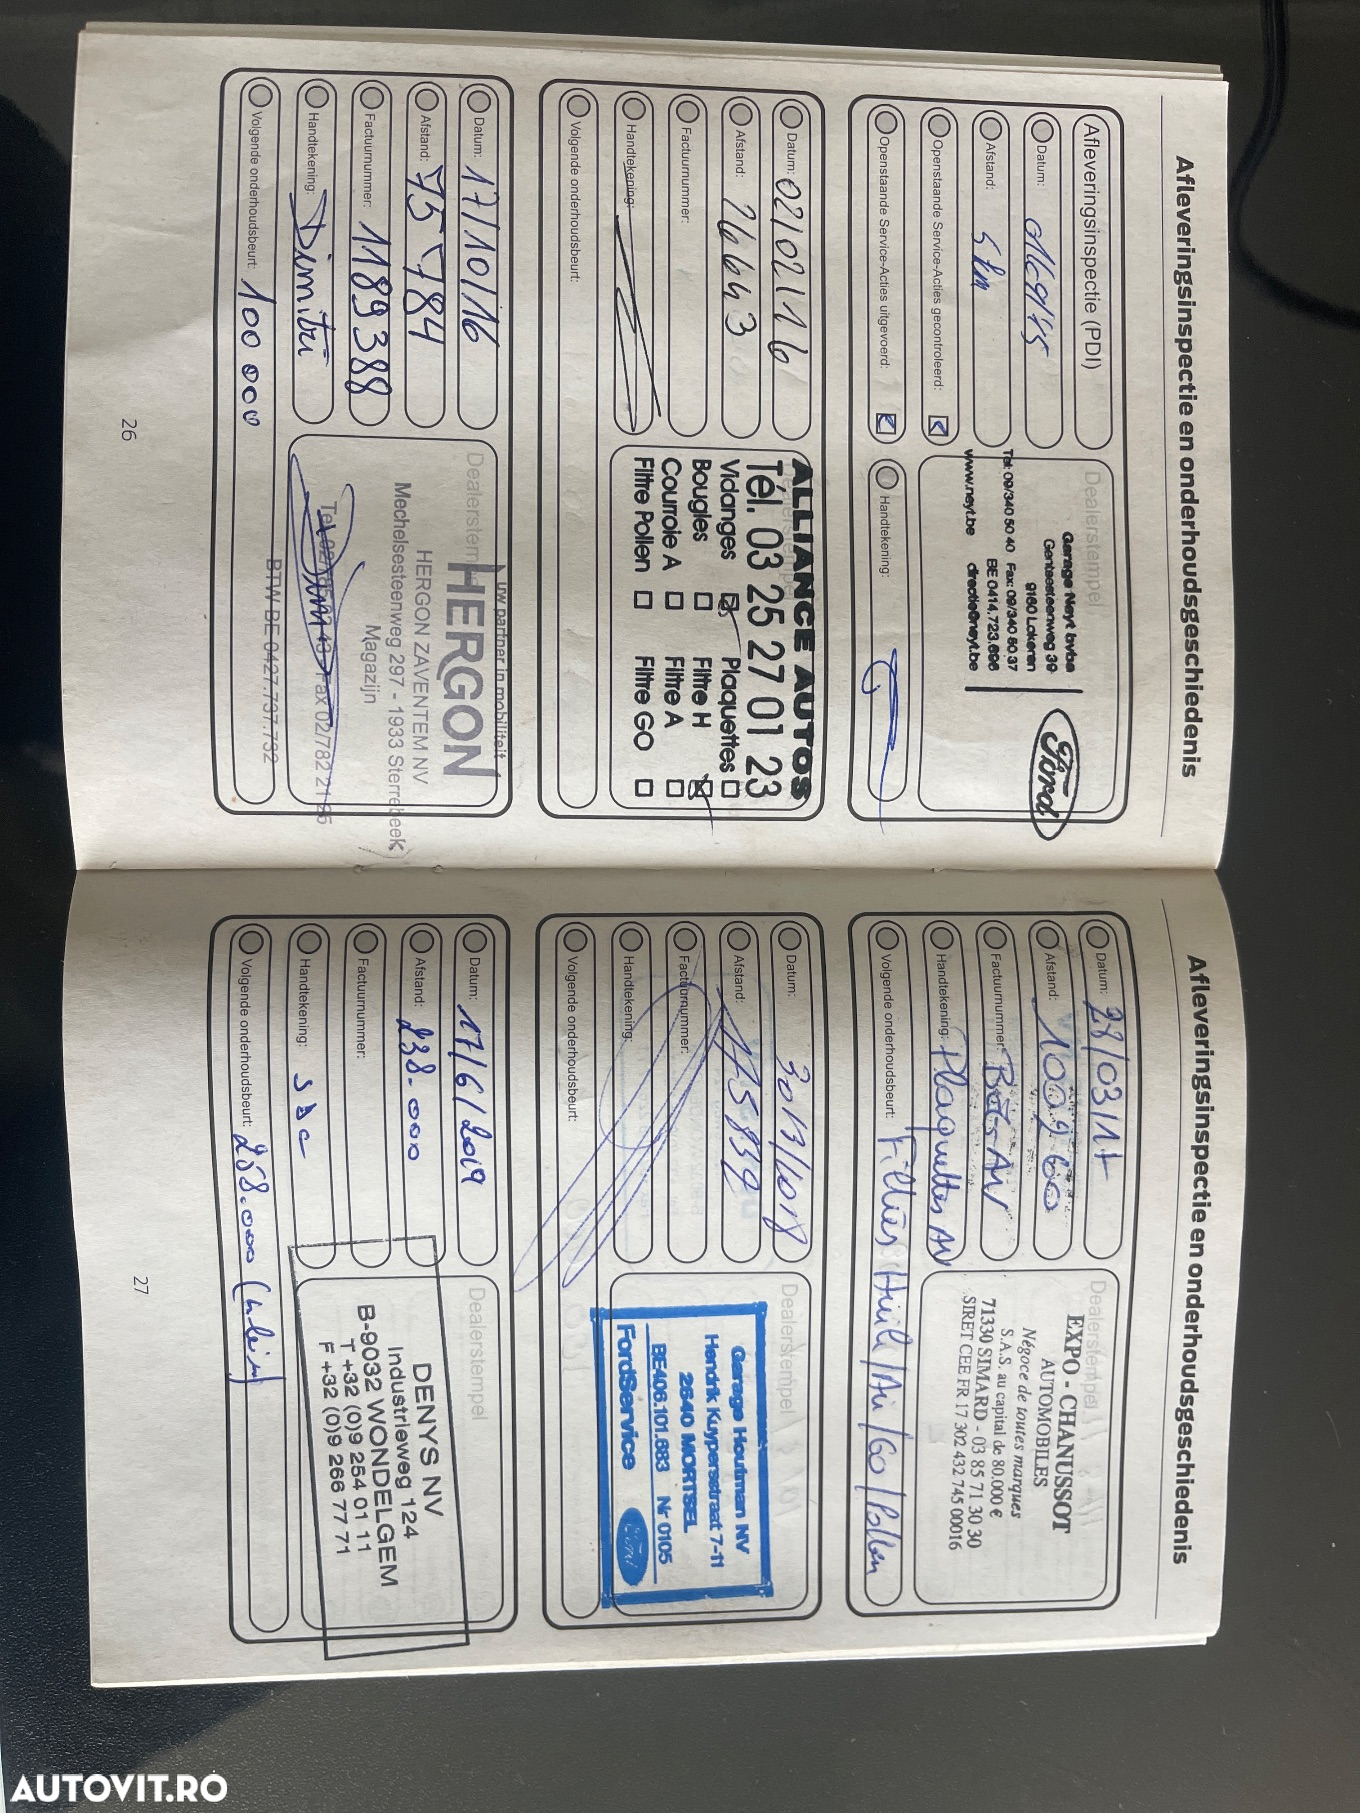 Afleveringsinspectie en onderhoudsgeschiedenis
Afleveringsinspectie (PDI)
Datum:
Afstand: 5 km
Openstaande Service-Acties gecontroleerd:
Openstaande Service-Acties uitgevoerd:
Handtekening:
Dealerstempel
Garage Neyt bvba
Gentsesteenweg 39
9160 Lokeren
Tel: 09/340 50 40 Fax: 09/340 50 37
BE 0414.723.696
www.neyt.be directie@neyt.be
Ford
Datum: 02/02/16
Afstand: 26643
Factuurnummer:
Handtekening:
Volgende onderhoudsbeurt:
ALLIANCE AUTOS
Tél. 03 25 27 01 23
Vidanges Plaquettes
Bougies Filtre H
Courroie A Filtre A
Filtre Pollen Filtre GO
Datum: 17/10/16
Afstand: 75784
Factuurnummer: 1189388
Handtekening: Dimitri
Volgende onderhoudsbeurt: 100 000
Dealerstempel
uw partner in mobiliteit
HERGON
HERGON ZAVENTEM NV
Mechelsesteenweg 297 - 1933 Sterrebeek
Magazijn
Fax 02/782 21 25
BTW BE 0427.737.732
26
Afleveringsinspectie en onderhoudsgeschiedenis
Datum: 28/03/17
Afstand: 100260
Factuurnummer:
Handtekening: Plaquettes AV
Volgende onderhoudsbeurt: Filtres Huile/Air/GO/Pollen
Dealerstempel
EXPO - CHANUSSOT
AUTOMOBILES
Négoce de toutes marques
S.A.S. au capital de 80.000 €
71330 SIMARD - 03 85 71 30 30
SIRET CEE FR 17 302 432 745 00016
Datum: 30/3/2018
Afstand:
Factuurnummer:
Handtekening:
Volgende onderhoudsbeurt:
Dealerstempel
Garage Houtman NV
Hendrik Kuypersstraat 7-11
2640 MORTSEL
BE406.101.683 Nr 0105
FordService Ford
Datum: 17/6/2019
Afstand: 238.000
Factuurnummer:
Handtekening:
Volgende onderhoudsbeurt: 258.000
Dealerstempel
DENYS NV
Industrieweg 124
B-9032 WONDELGEM
T +32 (0)9 254 01 11
F +32 (0)9 266 77 71
27
AUTOVIT.RO